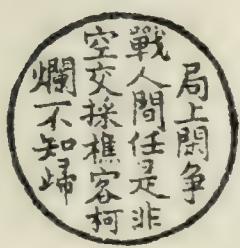 局上閑争
戰人間任是非
空交採樵客柯
爛不知㱕